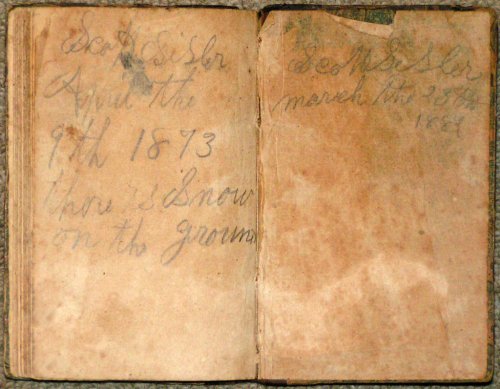 Scott Sisler
April the
9th 1873
thore is Snow
on the ground
Scott Sisler
march the 28th